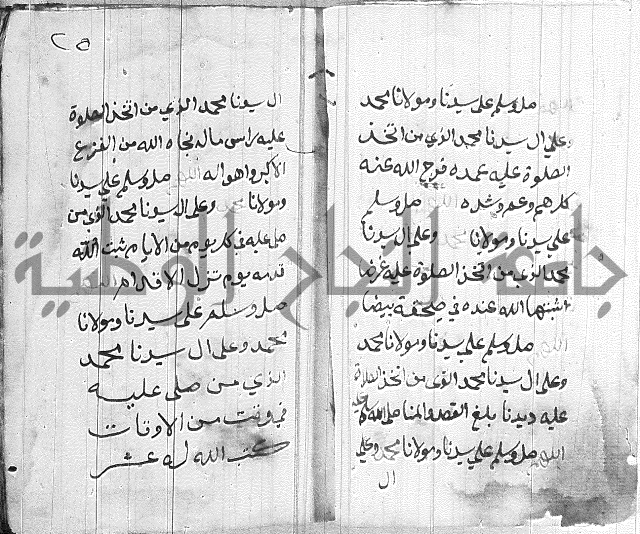 صل وسلم علي سيدنا ومولانا محمد
وعلي ال سيدنا محمد الذي من اتخذ
الصلوة عليه عمده فرج الله عنه
كل هم وغم وشده اللهم صل وسلم
علي سيدنا ومولانا محمد وعلي ال سيدنا
محمد الذي من اتخذ الصلوة عليه غرضا
اثبتها الله عنده في صحفة بيضا
اللهم صل وسلم علي سيدنا ومولانا محمد
وعلي ال سيدنا محمد الذي من اتخذ الصلاة
عليه ديدنا بلغ القصد والمنا
اللهم صل وسلم علي سيدنا ومولانا محمد وعلي
ال
٢٥
ال سيدنا محمد الذي من اتخذ الصلوة
عليه راس ماله نجاه الله من الفزع
الاكبر واهواله اللهم صل وسلم علي سيدنا
ومولانا محمد وعلي ال سيدنا محمد الذي من
صلي عليه في كل يوم من الايام ثبت الله
قدمه يوم تزل الاقدام اللهم
صل وسلم علي سيدنا ومولانا
محمد وعلي ال سيدنا محمد
الذي من صلي عليه
في وقت من الاوقات
كتب الله له عشر
جامعة النجاح الوطنية